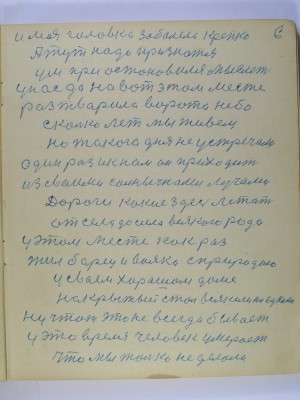 6
и моя головка заболела крепко
А тут надо признатся
ум при остоновился
у нас да на вот этом месте
разтварила ворота небо
сколко лет мы живем
но такого дня не устречали
один раз и к нам он приходит
из своими солнычными лучами
Дороги какие здес летат
от села до села всякого рода
у этом месте как раз
жил барин и вояка с природаю
у сваем харошом доме
на крыжый стол
ну что ж это не всегда бывает
у это время человек умерает
что мы толко не делали